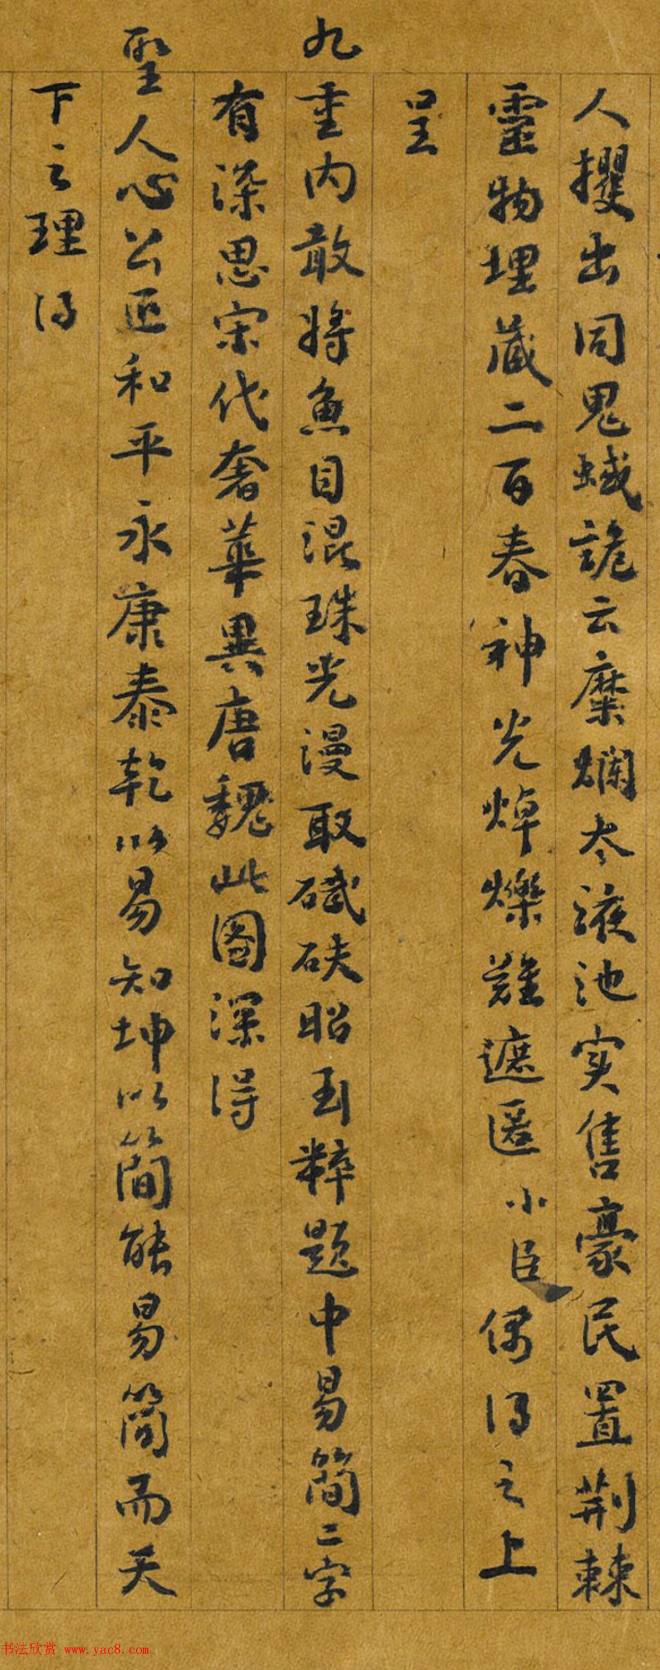 人攫出同鬼蜮詭云糜爛太液池实售豪民置荆棘
靈物埋藏二百春神光焯爍難遮匿小臣偶得之上
呈
九重内敢將魚目混珠光漫取碔砆眩玉粹題中易簡二字
有深思宋代奢華異唐魏此图深得
聖人心公正和平永康泰乾以易知坤以簡能易簡而天
下之理得
书法欣赏 www.yac8.com